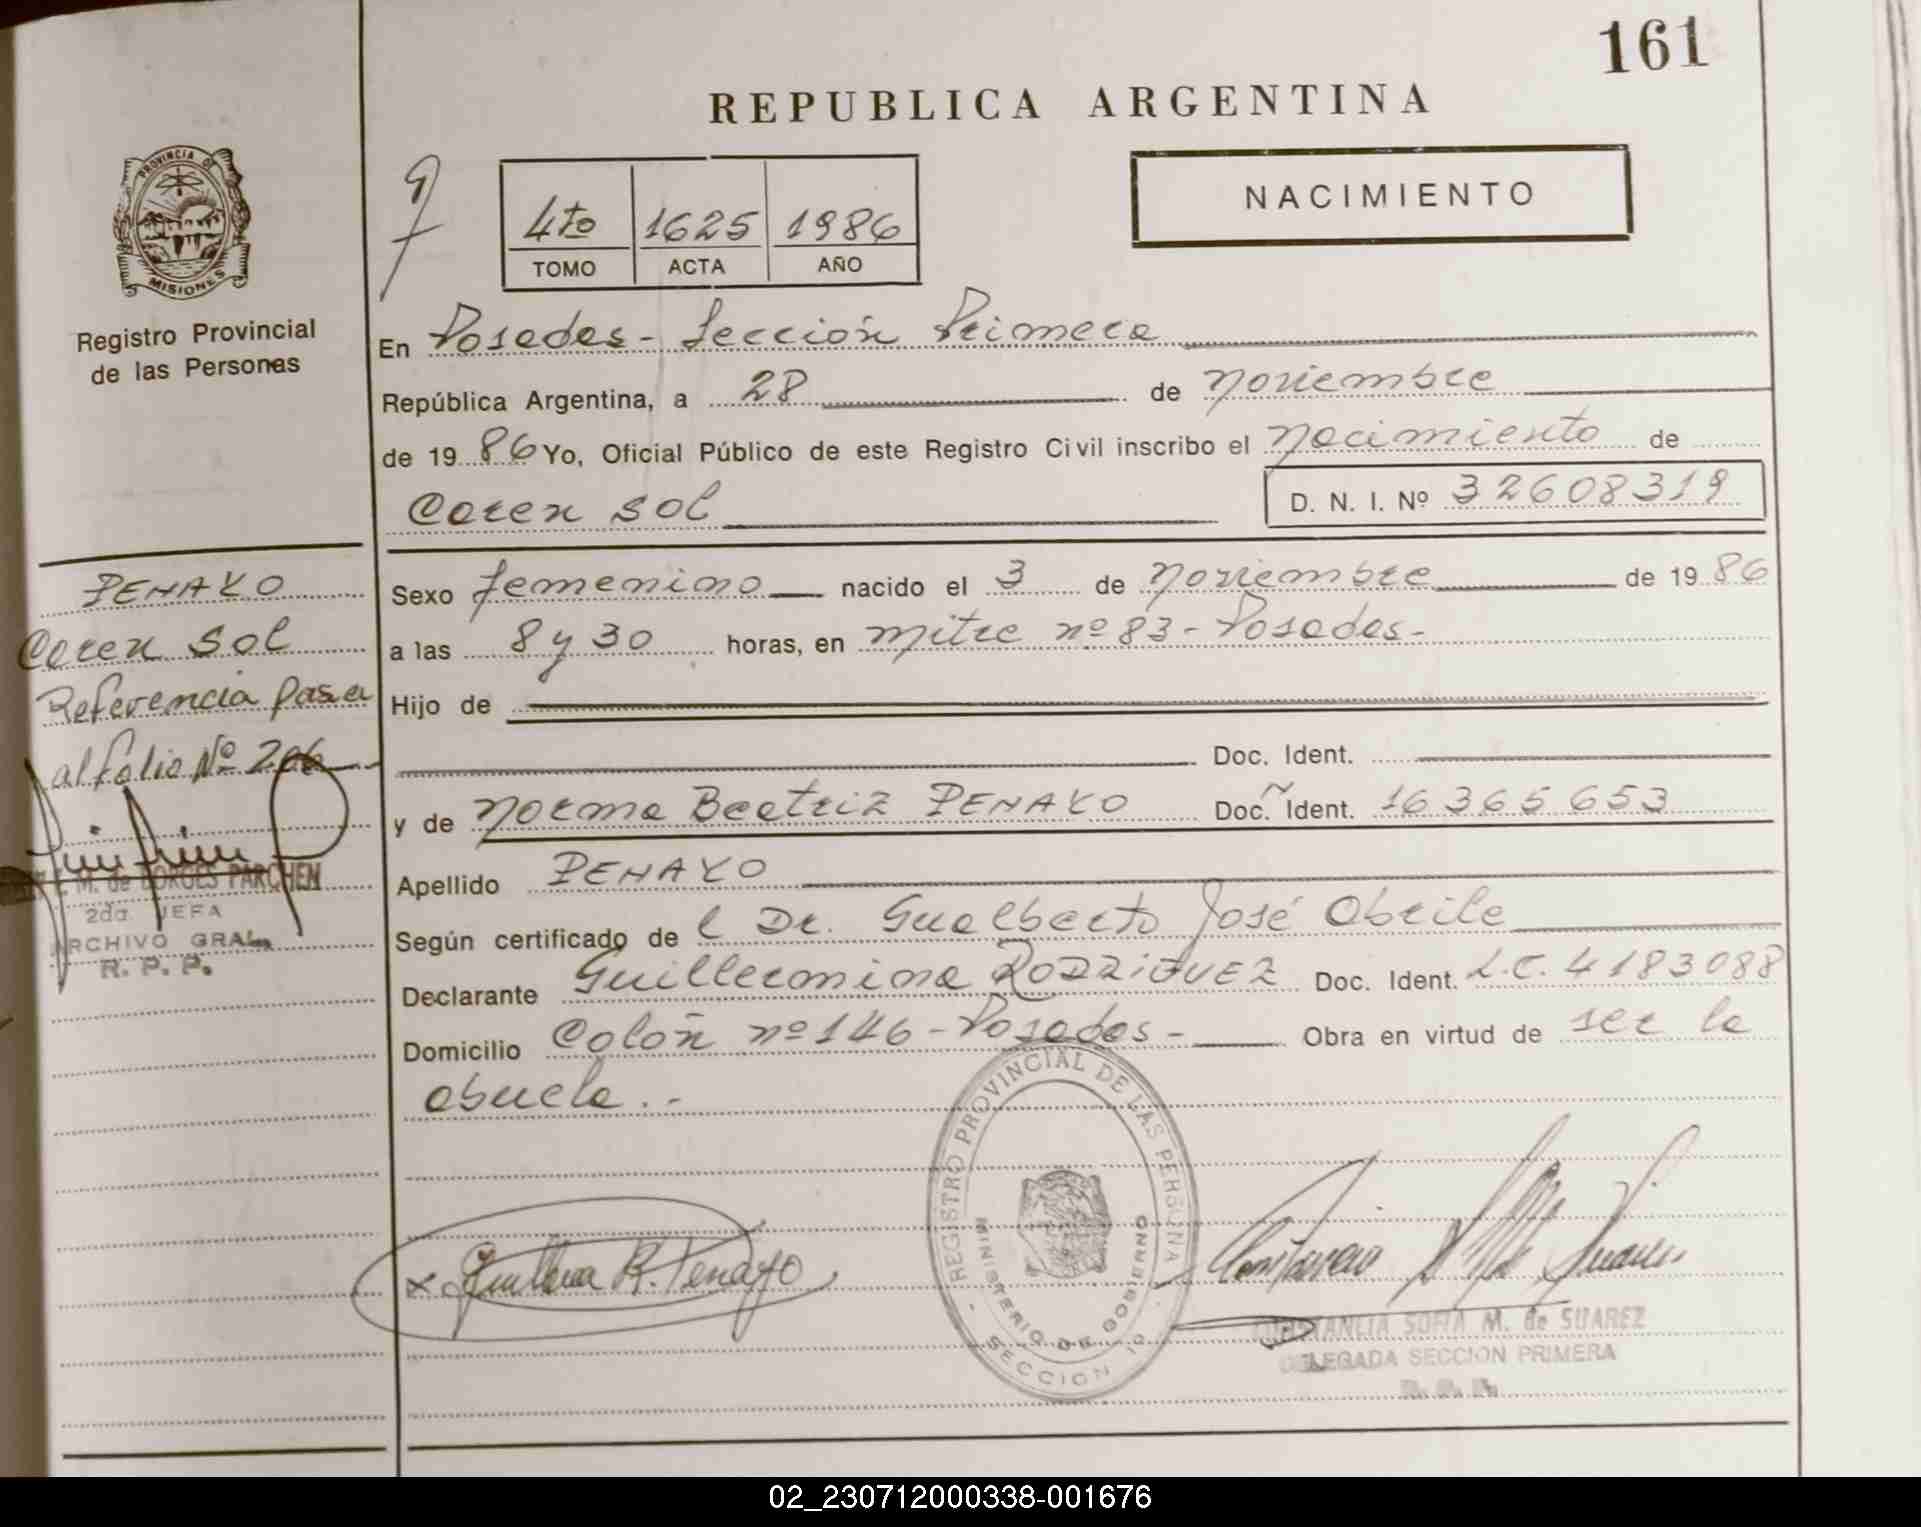 161
REPUBLICA ARGENTINA
NACIMIENTO
4to 1625 1986
TOMO ACTA AÑO
PROVINCIA DE MISIONES
Registro Provincial
de las Personas
En Posadas - Sección Primera
República Argentina, a 28 de noviembre
de 19 86 Yo, Oficial Público de este Registro Civil inscribo el nacimiento de
Caren Sol D. N. I. Nº 32608319
Sexo femenino nacido el 3 de noviembre de 19 86
a las 8 y 30 horas, en mitre nº 83 - Posadas -
Hijo de
Doc. Ident.
y de Norma Beatriz PENAYO Doc. Ident. 16365653
Apellido PENAYO
Según certificado de l Dr. Gualberto José Obrile
Declarante Guillermina RODRIGUEZ Doc. Ident. L.C. 4183088
Domicilio Colón nº 146 - Posadas - Obra en virtud de ser la
abuela . -
PENAYO
Caren Sol
Referencia pasa
al folio Nº 206
M. de BORGES PARCHEN
2da. JEFA
ARCHIVO GRAL.
R. P. P.
REGISTRO PROVINCIAL DE LAS PERSONAS
MINISTERIO DE GOBIERNO
SECCION 1º
x Guillerma R. Penayo
CONSTANCIA SOFIA M. de SUAREZ
DELEGADA SECCION PRIMERA
02_230712000338-001676